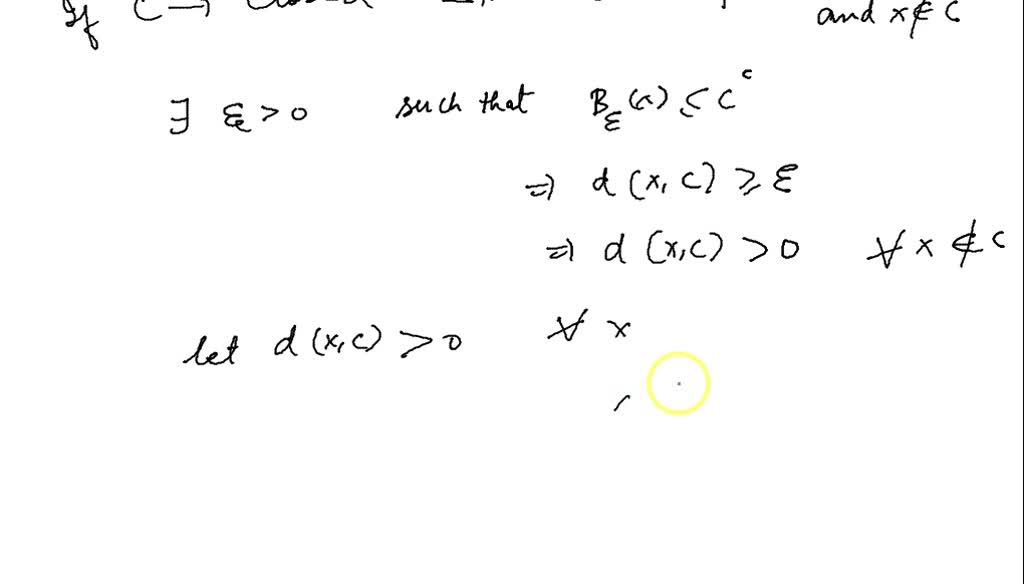 If C → closed
and x ∉ C
∃ ε > 0 such that B_ε(x) ⊆ C^c
⇒ d(x, C) ≥ ε
⇒ d(x, C) > 0 ∀ x ∉ C
let d(x, C) > 0 ∀ x